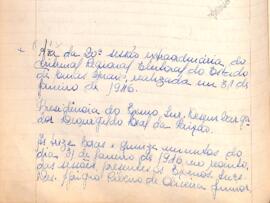 "Ata da 20ª sessão extraordinária do
Tribunal Regional Eleitoral do Estado
de Minas Gerais, realizada em 31 de
janeiro de 1946.
Presidência do Exmo. Snr. Desembarga-
dor Leal da Paixão.
Às treze horas e quinze minutos do
dia 31 de janeiro de 1946, no recinto
das sessões presentes os Exmos. Snrs.
Des. de Oliveira